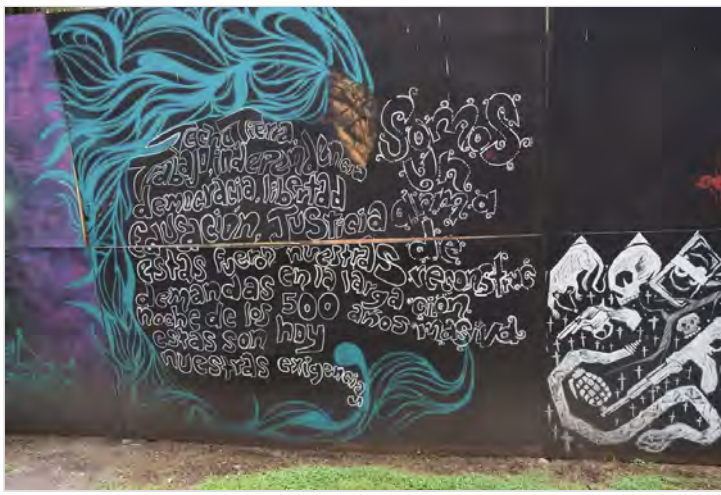 techo, tiera,
trabajo, independencia
democracia, libertad
educación, Justicia
estas fueron nuestras
demandas en la larga
noche de los 500 años
estas son hoy
nuestras exigencias.
Somos
un
arma
de
reconstruc
ción
masiva